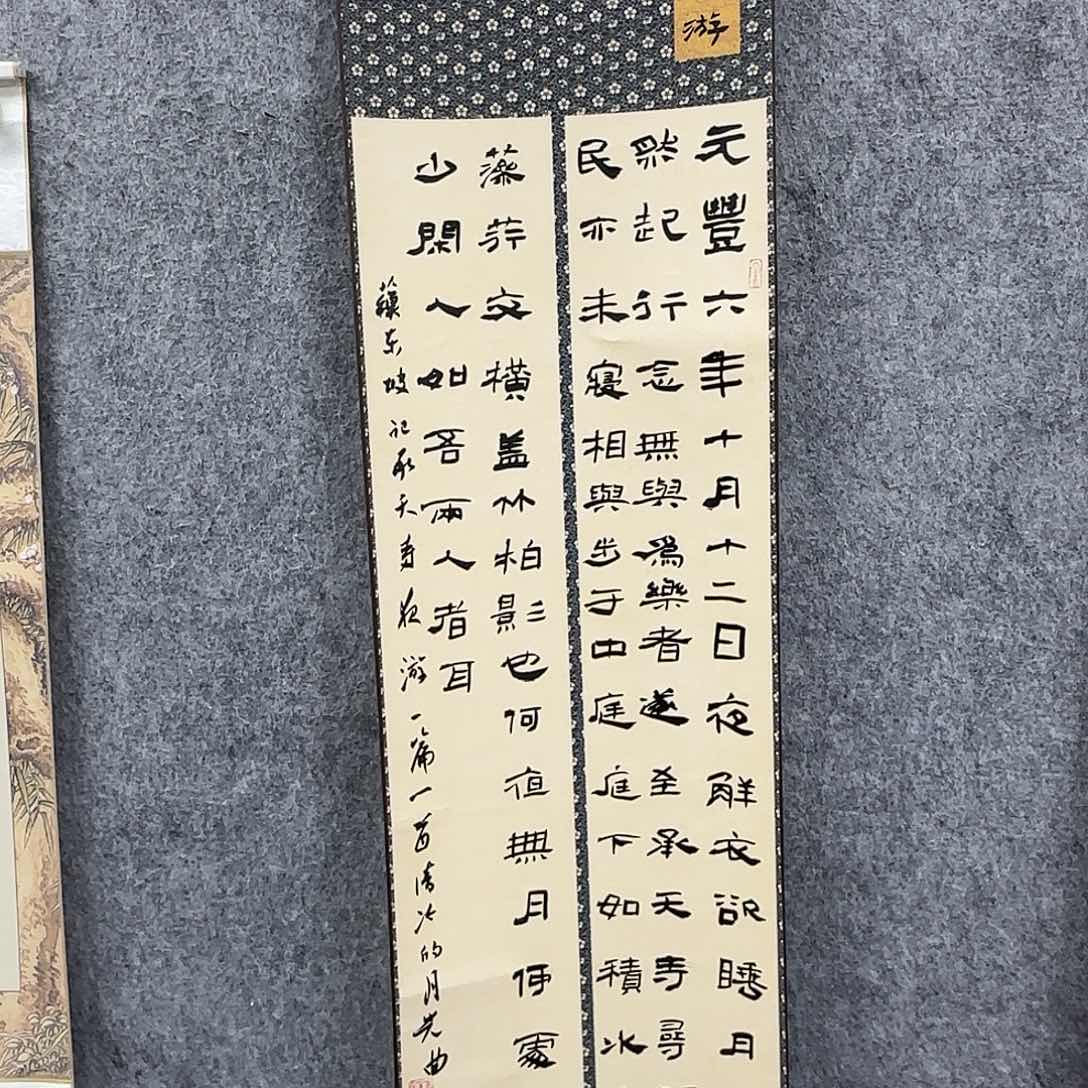 游
元豐六年十月十二日夜解衣欲睡月
然起行念無與爲樂者遂至承天寺尋
民亦未寢相與步于中庭庭下如積水
藻荇交橫盖竹柏影也何夜無月何處
少閑人如吾兩人者耳
蘇东坡记承天寺夜游一篇一首清冷的月光曲